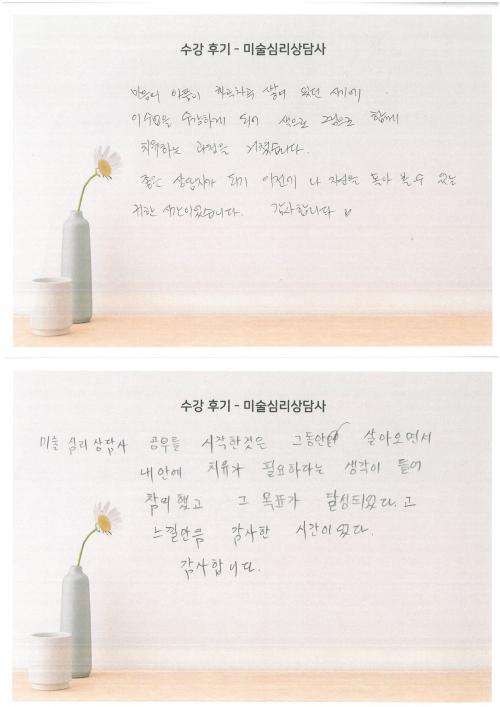 수강 후기 - 미술심리상담사
마음의 아픔이 차곡차곡 쌓여 있던 시기에
이 수업을 수강하게 되어 색으로 그림으로 함께
치유하는 과정을 거쳤습니다.
좋은 상담자가 되기 이전에 나 자신을 돌아 볼 수 있는
귀한 시간이었습니다. 감사합니다
수강 후기 - 미술심리상담사
미술 심리 상담사 공부를 시작한것은 그동안 살아오면서
내 안에 치유가 필요하다는 생각이 들어
참여 했고 그 목표가 달성되었다.고
느낄만큼 감사한 시간이었다.
감사합니다.